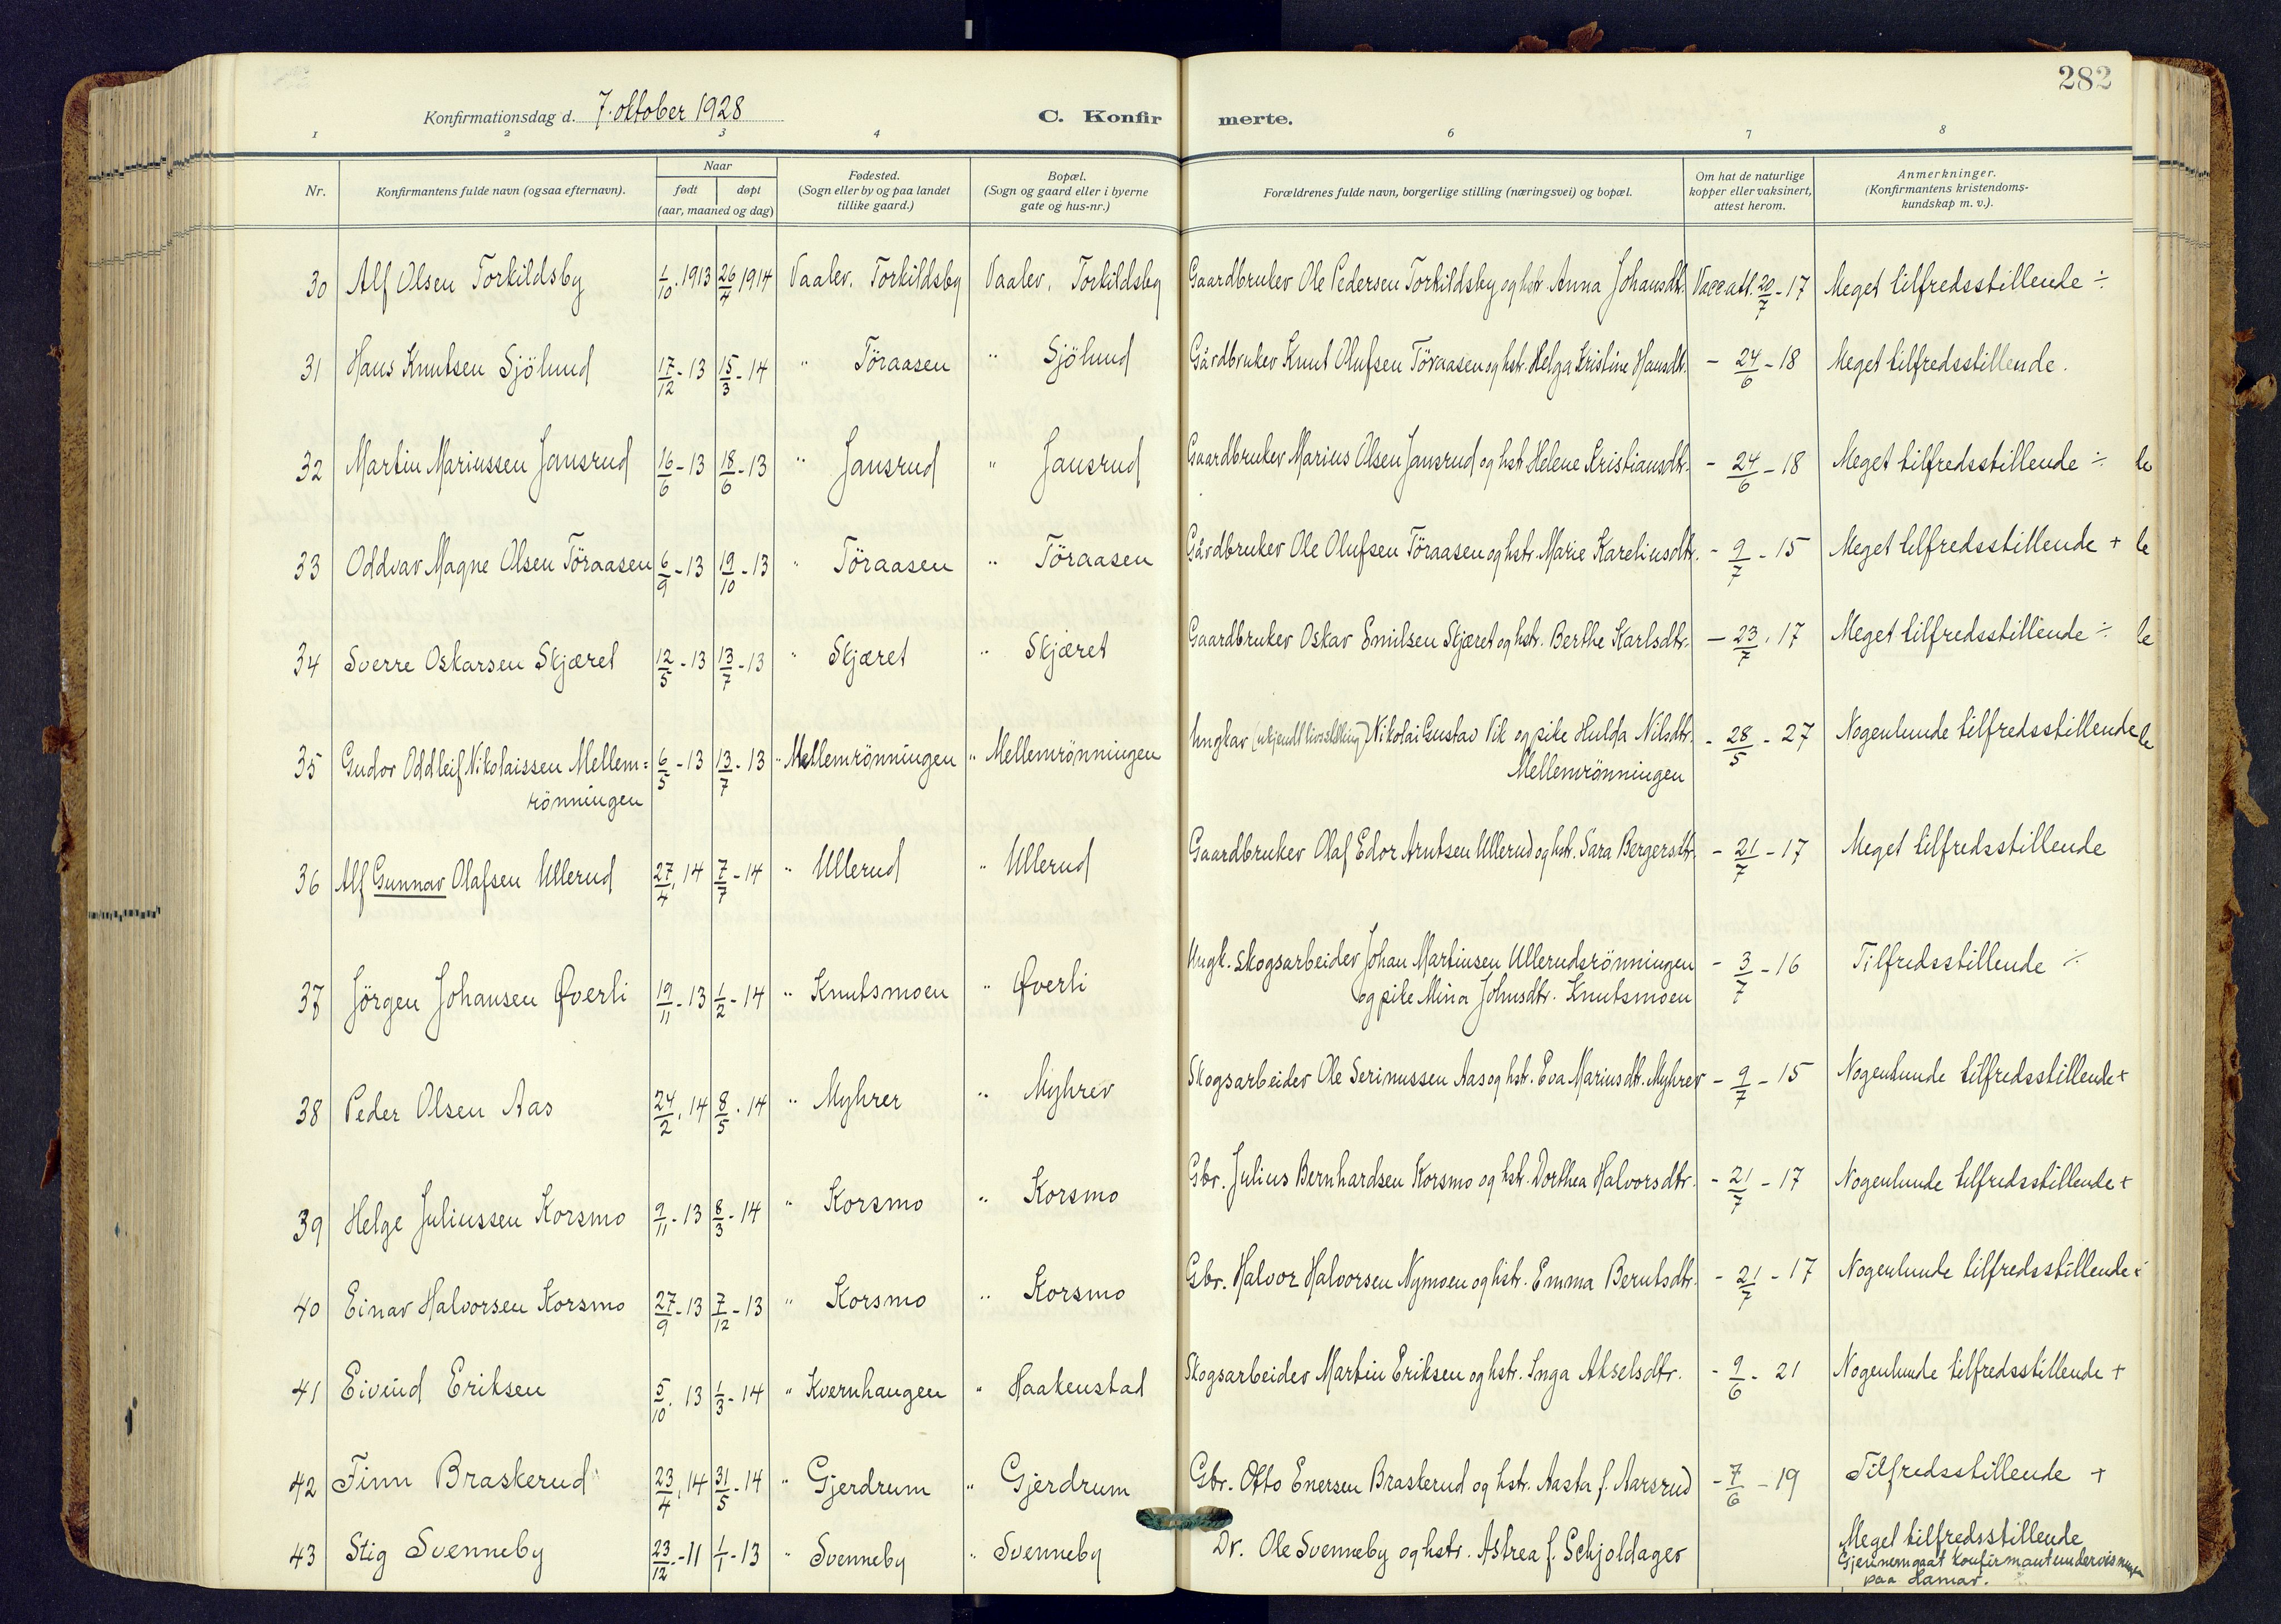 282
Konfirmationsdag d. 7. oktober 1928
C. Konfir merte.
1 2 3 4 6 7 8
Nr.
Konfirmantens fulde navn (ogsaa efternavn).
Naar
født døpt
(aar, maaned og dag)
Fødested.
(Sogn eller by og paa landet
tillike gaard.)
Bopæl.
(Sogn og gaard eller i byerne
gate og hus-nr.)
Forældrenes fulde navn, borgerlige stilling (næringsvei) og bopæl.
Om hat de naturlige
kopper eller vaksinert,
attest herom.
Anmerkninger.
(Konfirmantens kristendoms-
kundskap m. v.).
30 Alf Olsen Torkildsby 1/10. 1913 26/4 1914 Vaaler. Torkildsby Vaaler, Torkildsby Gaardbruker Ole Pedersen Torkildsby og hstr. Anna Johansdtr. Vacc att. 20/7 - 17 Meget tilfredsstillende ÷
31 Hans Knutsen Sjölund 17/12 - 13 15/3 - 14 " Töraasen " Sjölund Gårdbruker Knut Olufsen Töraasen og hstr. Helga Kristine Hansdtr. - 24/6 - 18 Meget tilfredsstillende.
32 Martin Mariussen Jansrud 16/6 - 13 18/6 - 13 " Jansrud " Jansrud Gaardbruker Marius Olsen Jansrud og hstr. Helene Kristiansdtr. - 24/6 - 18 Meget tilfredsstillende ÷ le
33 Oddvar Magne Olsen Töraasen 6/9 - 13 19/10 - 13 " Töraasen " Töraasen Gårdbruker Ole Olufsen Töraasen og hstr. Marie Kareliusdtr. - 9/7 - 15 Meget tilfredsstillende + le
34 Sverre Oskarsen Skjæret 12/5 - 13 13/7 - 13 " Skjæret " Skjæret Gaardbruker Oskar Emilsen Skjæret og hstr. Berthe Karlsdtr. - 23/7 . 17 Meget tilfredsstillende ÷ le
35 Gudor Oddleif Nikolaissen Mellem= 6/5 - 13 13/7 - 13 " Mellemrönningen " Mellemrönningen Ungkar (ukjendt livsstilling) Nikolai Gustav Vik og pike Hulda Nilsdtr. - 28/5 - 27 Nogenlunde tilfredsstillende le
rönningen Mellemrönningen
36 Alf Gunnar Olafsen Ullerud 27/4 . 14 7/7 - 14 " Ullerud " Ullerud Gaardbruker Olaf Edor Arntsen Ullerud og hstr. Sara Bergersdtr. - 21/7 - 17 Meget tilfredsstillende
37 Jörgen Johansen Øverli 19/11 - 13 1/2 - 14 " Knutsmoen " Øverli Ungk. skogsarbeider Johan Martinsen Ullerudsrönningen - 3/7 - 16 Tilfredsstillende ÷
og pike Mina Johnsdtr. Knutsmoen
38 Peder Olsen Aas 24/2 . 14 8/5 . 14 " Myhrer " Myhrer Skogsarbeider Ole Serinussen Aas og hstr. Eva Mariusdtr. Myhrer - 9/7 - 15 Nogenlunde tilfredsstillende +
39 Helge Juliussen Korsmo 9/11 - 13 8/3 - 14 " Korsmo " Korsmo Gbr. Julius Bernhardsen Korsmo og hstr. Dorthea Halvorsdtr. - 21/7 - 17 Nogenlunde tilfredsstillende +
40 Einar Halvorsen Korsmo 27/9 - 13 7/12 - 13 " Korsmo " Korsmo Gbr. Halvor Halvorsen Nymoen og hstr. Emma Berntsdtr. - 21/7 - 17 Nogenlunde tilfredsstillende
41 Eivind Eriksen 5/10 . 13 1/3 - 14 " Kvernhaugen " Haakenstad Skogsarbeider Martin Eriksen og hstr. Inga Akselsdtr. - 9/6 - 21 Nogenlunde tilfredsstillende +
42 Finn Braskerud 23/4 . 14 31/5 - 14 " Gjerdrum " Gjerdrum Gbr. Otto Enersen Braskerud og hstr. Aasta f. Aarsrud - 7/6 - 19 Tilfredsstillende +
43 Stig Svenneby 23/12 - 11 1/1 - 13 " Svenneby " Svenneby Dr. Ole Svenneby og hstr. Astrea f. Schjoldager Meget tilfredsstillende
Gjennemgaat konfirmantundervisningen
paa Hamar.